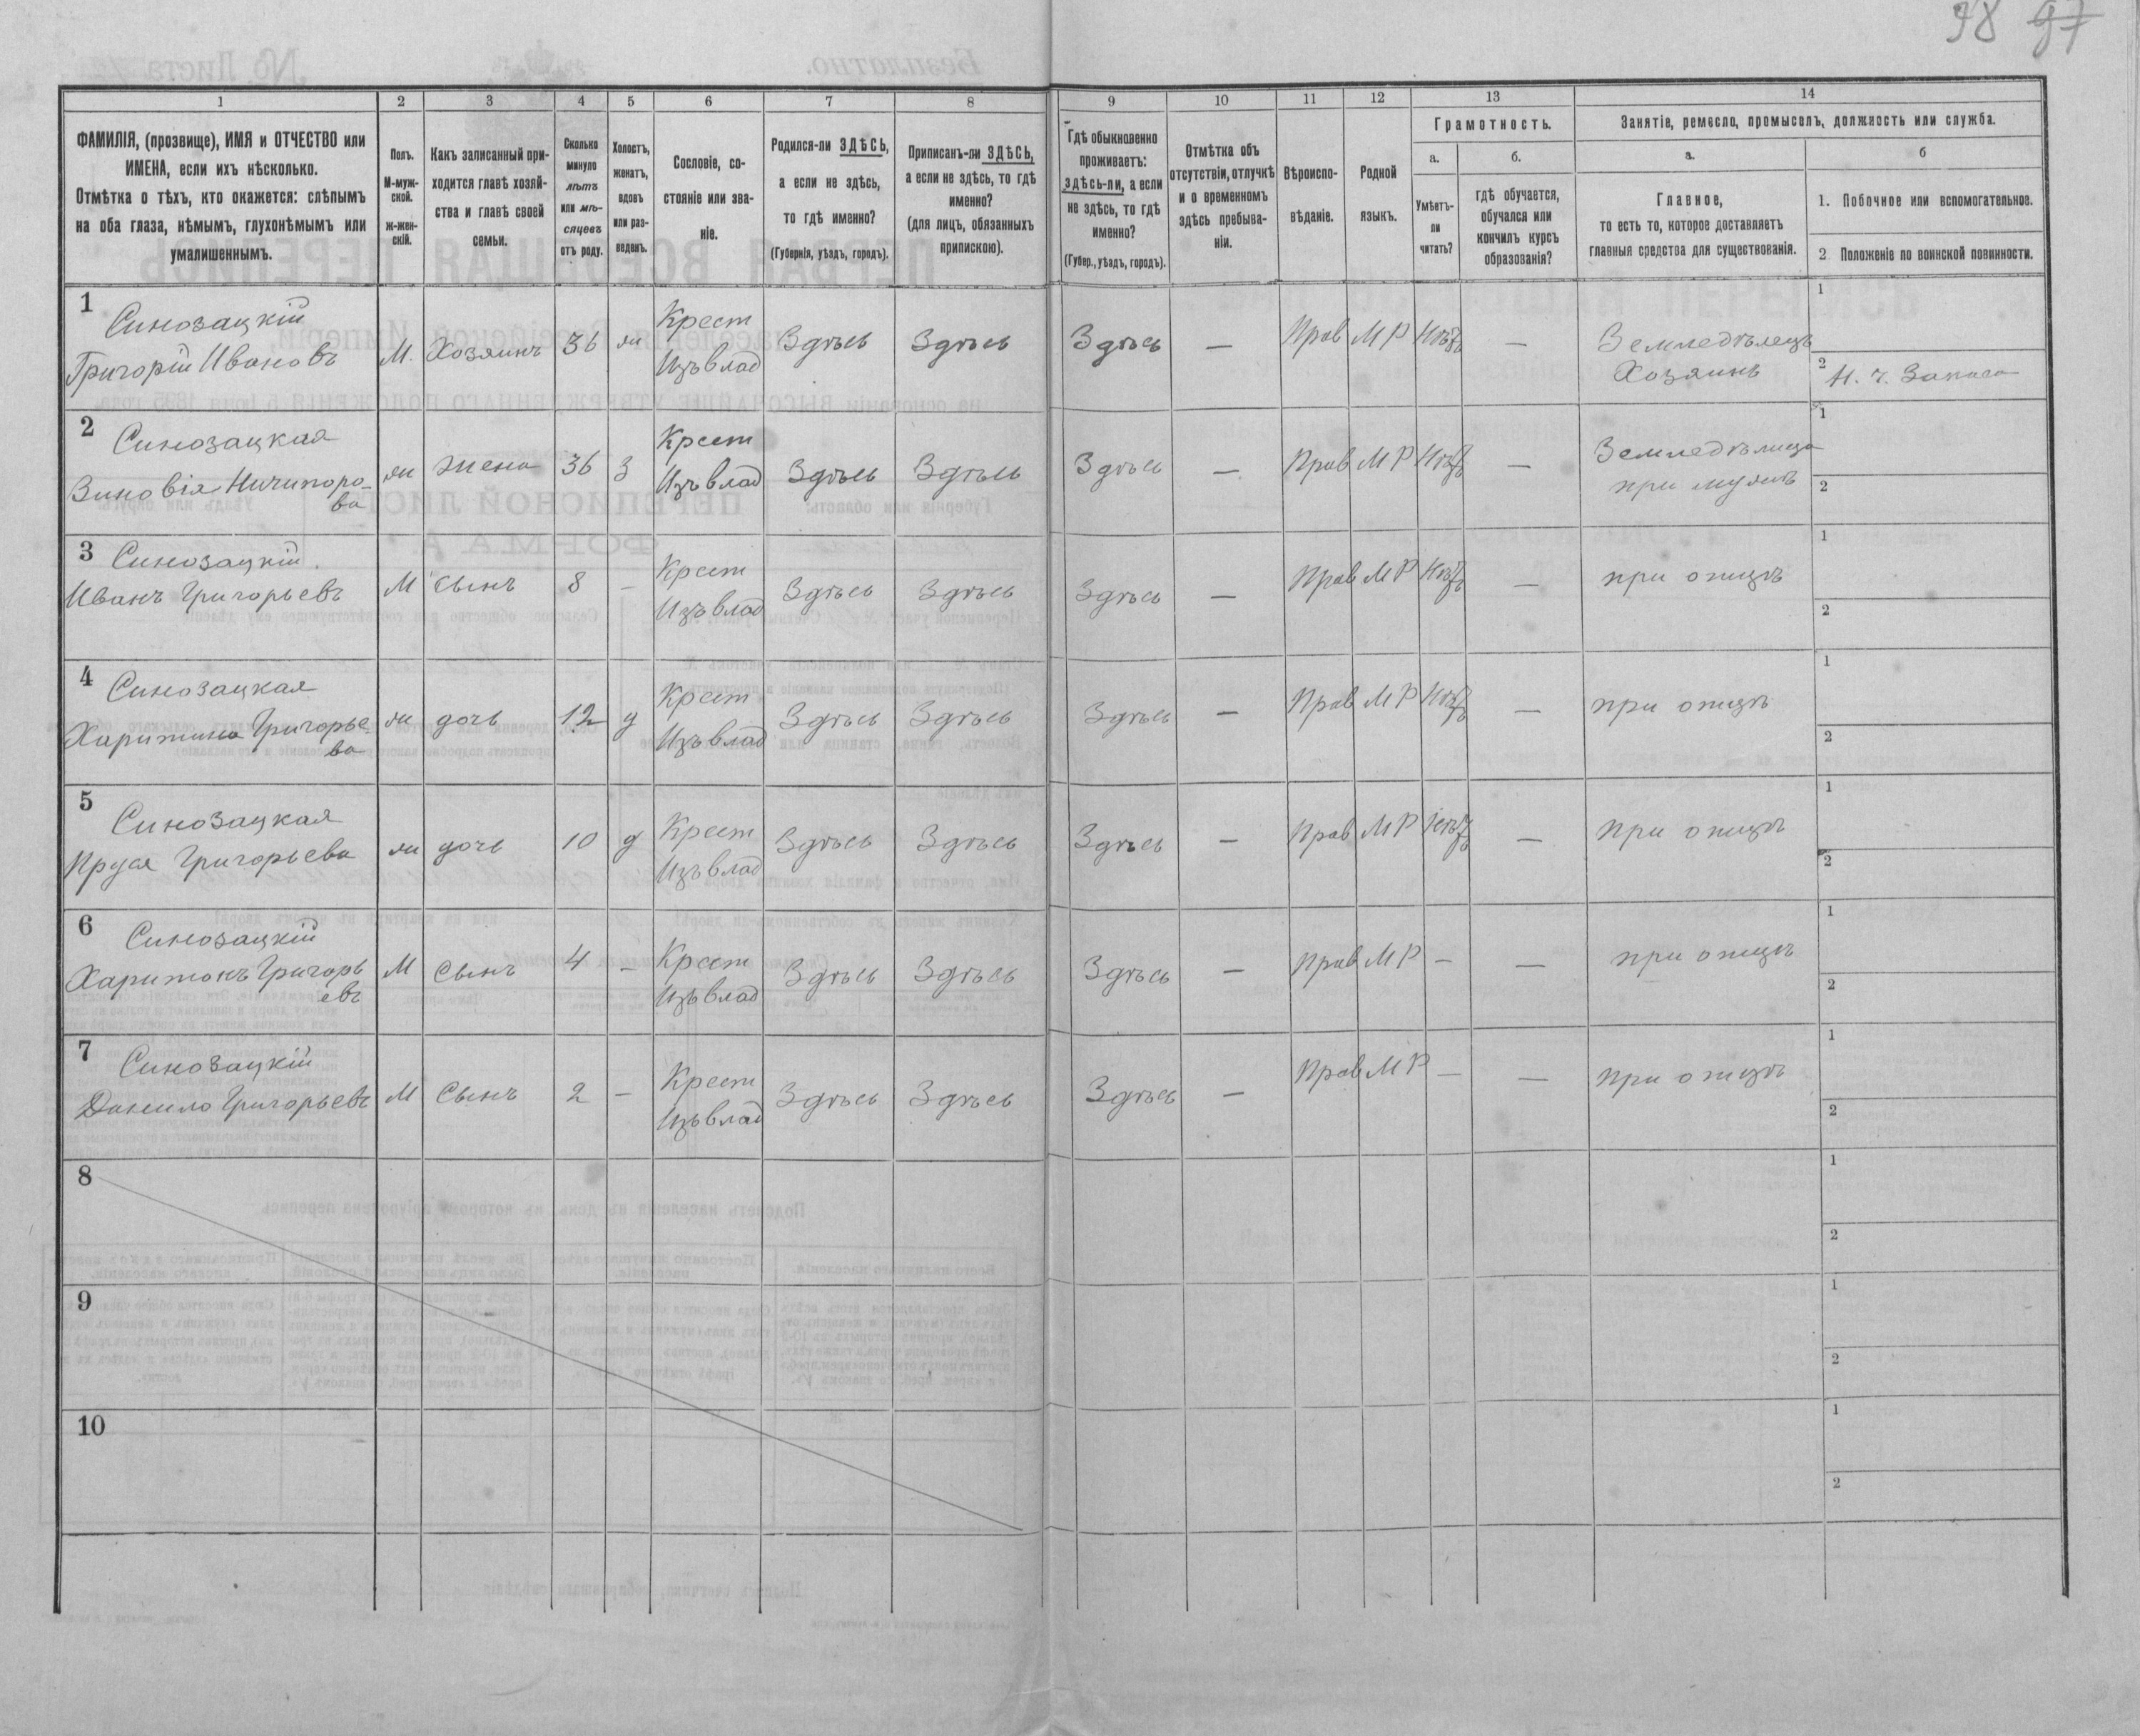 98 97
1 2 3 4 5 6 7 8 9 10 11 12 13 14
ФАМИЛІЯ, (прозвище), ИМЯ и ОТЧЕСТВО или
ИМЕНА, если ихъ нѣсколько.
Отмѣтка о тѣхъ, кто окажется: слѣпымъ
на оба глаза, нѣмымъ, глухонѣмымъ или
умалишеннымъ.
Полъ.
М-муж-
ской.
ж-жен-
скій.
Какъ записанный при-
ходится главѣ хозяй-
ства и главѣ своей
семьи.
Сколько
минуло
лѣтъ
или мѣ-
сяцевъ
отъ роду.
Холостъ,
женатъ,
вдовъ
или раз-
веденъ.
Сословіе, со-
стояніе или зва-
ніе.
Родился-ли ЗДѢСЬ,
а если не здѣсь,
то гдѣ именно?
(Губернія, уѣздъ, городъ).
Приписанъ-ли ЗДѢСЬ,
а если не здѣсь, то гдѣ
именно?
(для лицъ, обязанныхъ
припискою).
Гдѣ обыкновенно
проживаетъ:
здѣсь-ли, а если
не здѣсь, то гдѣ
именно?
(Губер., уѣздъ, городъ).
Отмѣтка объ
отсутствіи, отлучкѣ
и о временномъ
здѣсь пребыва-
ніи.
Вѣроиспо-
вѣданіе.
Родной
языкъ.
Грамотность.
а.
Умѣетъ-
ли
читать?
б.
гдѣ обучается,
обучался или
кончилъ курсъ
образованія?
Занятіе, ремесло, промыселъ, должность или служба.
а.
Главное,
то есть то, которое доставляетъ
главныя средства для существованія.
б
1. Побочное или вспомогательное.
2 Положеніе по воинской повинности.
1 Синозацкій Крест 1
Григорій Ивановъ М. Хозяинъ 36 ж Изъ влад Здѣсь Здѣсь Здѣсь — Прав М Р Нѣтъ — Земледѣлецъ
Хозяинъ 2 Н. ч. Запаса
2 Синозацкая Крест 1
Зиновія Ничипоро- ж жена 36 З Изъ влад Здѣсь Здѣсь Здѣсь — Прав М Р Нѣтъ — Земледѣлица
ва при мужѣ 2
3 Синозацкій Крест 1
Иванъ Григорьевъ М сынъ 8 — Изъ влад Здѣсь Здѣсь Здѣсь — Прав М Р Нѣтъ — при отцѣ
2
4 Синозацкая Крест 1
Харитина Григорье- ж дочь 12 д Изъ влад Здѣсь Здѣсь Здѣсь — Прав М Р Нѣтъ — при отцѣ
ва 2
5 Синозацкая Крест 1
Пруся Григорьева ж дочь 10 д Изъ влад Здѣсь Здѣсь Здѣсь — Прав М Р Нѣтъ — при отцѣ
2
6 Синозацкій Крест 1
Харитонъ Григорь М Сынъ 4 — Изъ влад Здѣсь Здѣсь Здѣсь — Прав М Р — — при отцѣ
евъ 2
7 Синозацкій Крест 1
Данило Григорьевъ М Сынъ 2 — Изъ влад Здѣсь Здѣсь Здѣсь — Прав М Р — — при отцѣ
2
8 1
2
9 1
2
10 1
2